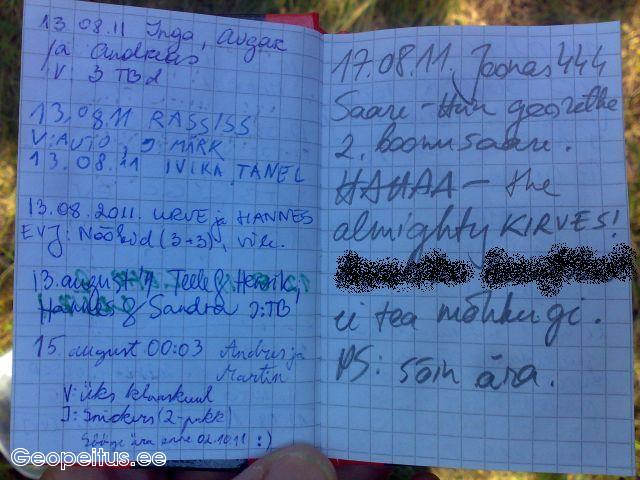 13 08.11 Inga, Avgak
ja Andreas
V: 3 TBd
13.08.11 RASSISS
V: AUTO, J: MÄRK
13.08.11 IVIKA TANEL
13.08.2011. URVE ja HANNES
EVJ: Nööbid (3+3), vile.
13. august 11 Teele & Henrik,
& Sandra J: TB
15. august 00:03 Andres ja
Martin
V: üks klaaskuul
J: Snickers (2-pakk)
Sööge ära enne 02.10.11 :)
17.08.11. Joonas444
Saare-
2. boonusaare.
HAHAA - the
almighty KIRVES!
ei tea mõhkugi.
PS: sõin ära.
Geopeitus.ee